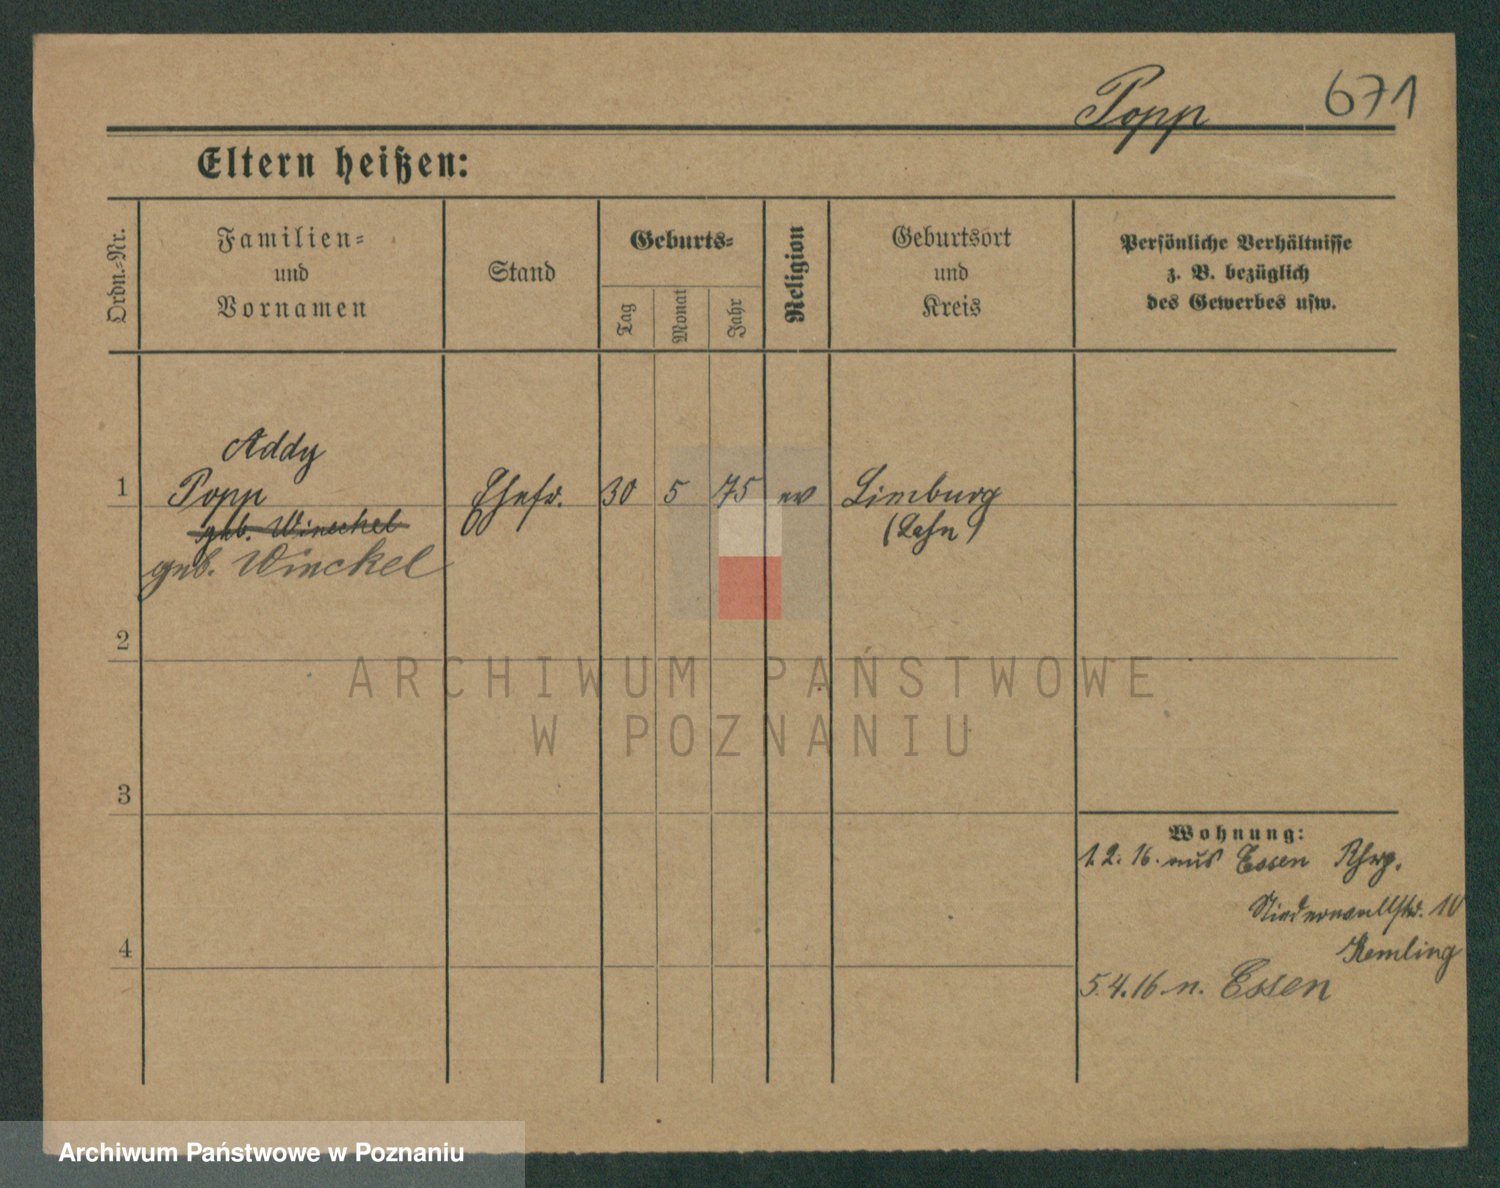 Popp 671
Eltern heißen:
Ordn.-Nr.
Familien-
und
Vornamen
Stand
Geburts-
Tag
Monat
Jahr
Religion
Geburtsort
und
Kreis
Persönliche Verhältnisse
z. B. bezüglich
des Gewerbes usw.
Addy
1 Popp Ehefr. 30 5 75 ev Limburg
geb. Winckel (Lahn)
geb. Winckel
2
ARCHIWUM PAŃSTWOWE
W POZNANIU
3
Wohnung:
1.2.16. aus Essen
10
Kemling
4
5.4.16 n. Essen
Archiwum Państwowe w Poznaniu